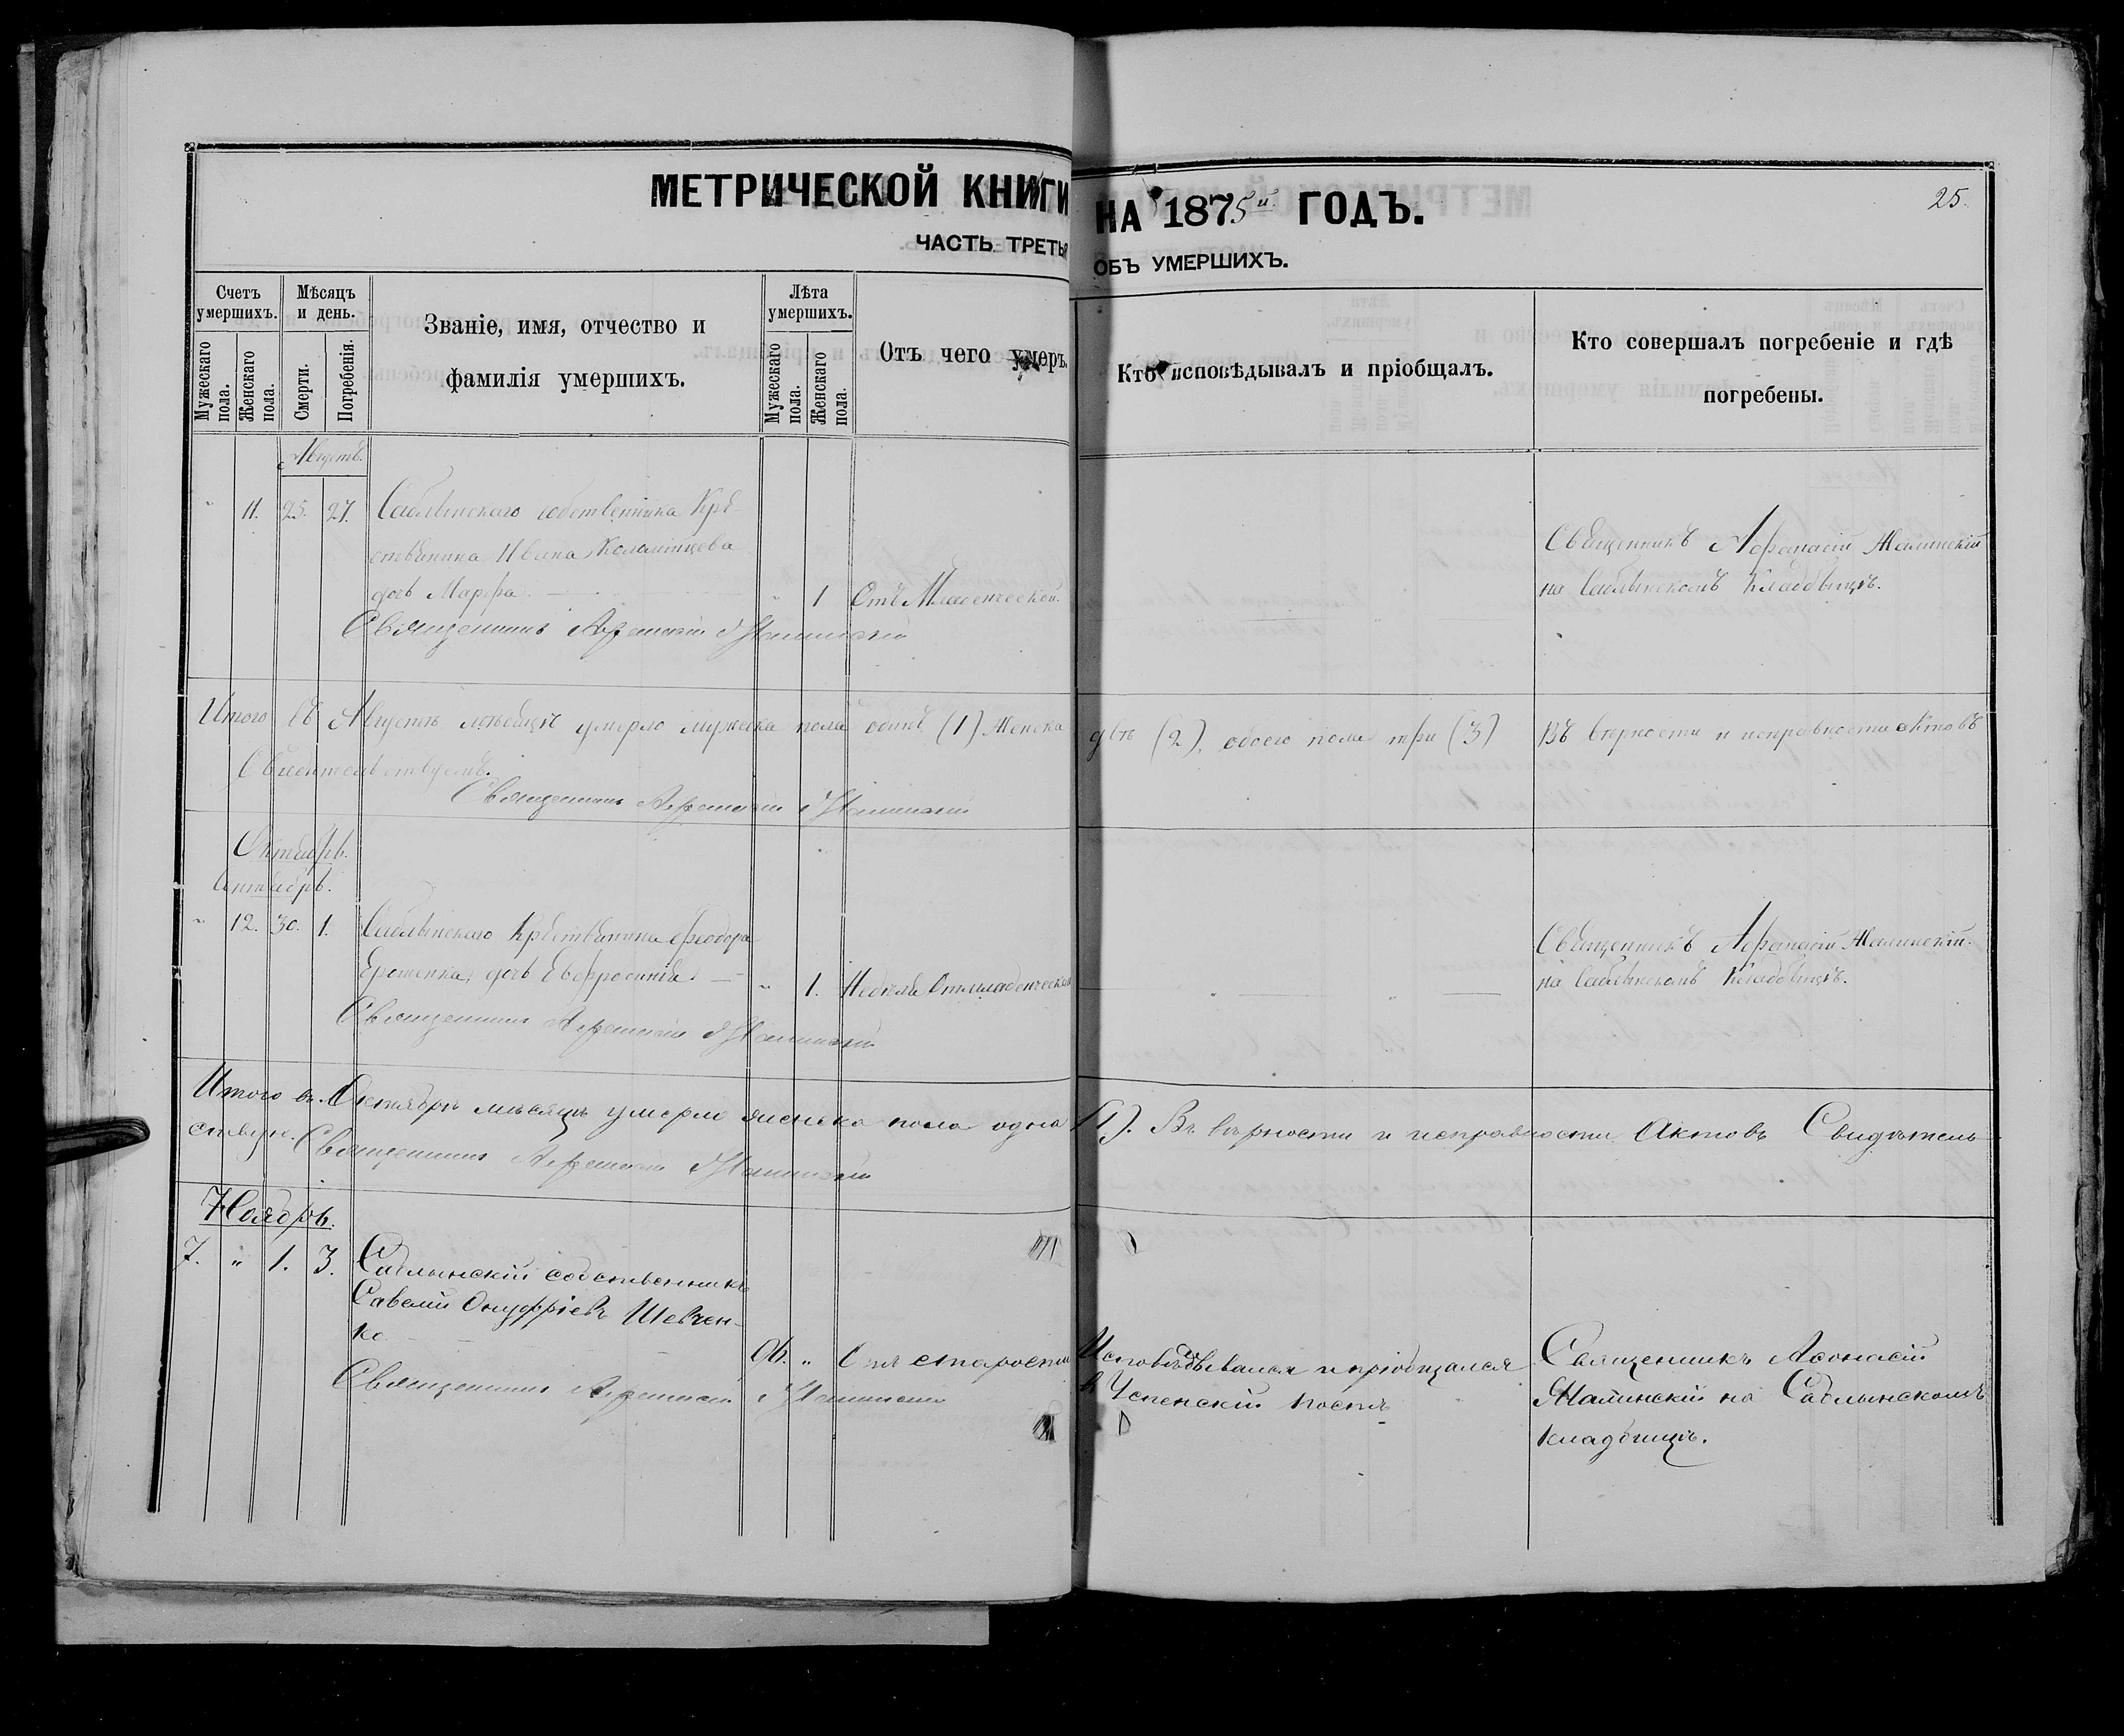 МЕТРИЧЕСКОЙ КНИГИ НА 1875й ГОДЪ.
25.
ЧАСТЬ ТРЕТЬЯ ОБЪ УМЕРШИХЪ.
Счетъ умершихъ.
Мужескаго пола.
Женскаго пола.
Мѣсяцъ и день.
Смерти.
Погребенія.
Званіе, имя, отчество и
фамилія умершихъ.
Лѣта умершихъ.
Мужескаго пола.
Женскаго пола.
Отъ чего умеръ.
Кто исповѣдывалъ и пріобщалъ.
Кто совершалъ погребеніе и гдѣ
погребены.
Августъ.
" 11. 25. 27. Саблынскаго собственника Крѣ-
стьянина Ивана Коломійцева
дочь Марфа. " 1 Отъ Младенческой.
Священникъ Афанасій Малинскій
на Саблынскомъ Кладбищѣ.
Священникъ Афанасій Малинскій
Итого въ Августѣ мѣсяцѣ умерло мужеска пола одинъ (1) Женска двѣ (2), обоего пола три (3) Въ вѣрности и исправности актовъ
Свидѣтельствуемъ.
Священникъ Афанасій Малинскій
Октябрь.
" 12. 30. 1. Саблынскаго Крѣстьянина Феодора
Ерошенка, дочь Евфросинія. " 1. Недѣля Отъ младенческой
Священникъ Афанасій Малинскій.
на Саблынскомъ Кладбищѣ.
Священникъ Афанасій Малинскій
Итого въ Октябрѣ мѣсяцѣ умерло женска пола одна (1). Въ вѣрности и исправности Актовъ Свидѣтель-
ствую. Священникъ Афанасій Малинскій
Ноябрь.
7. " 1. 3. Саблынскій собственникъ
Савелій Онуфріевъ Шевчен-
ко 96. " Отъ старости
Исповѣдывался и пріобщался
в Успенскій постъ
Священникъ Афонасій
Малинскій на Саблынскомъ
кладбищѣ.
Священникъ Афанасій Малинскій